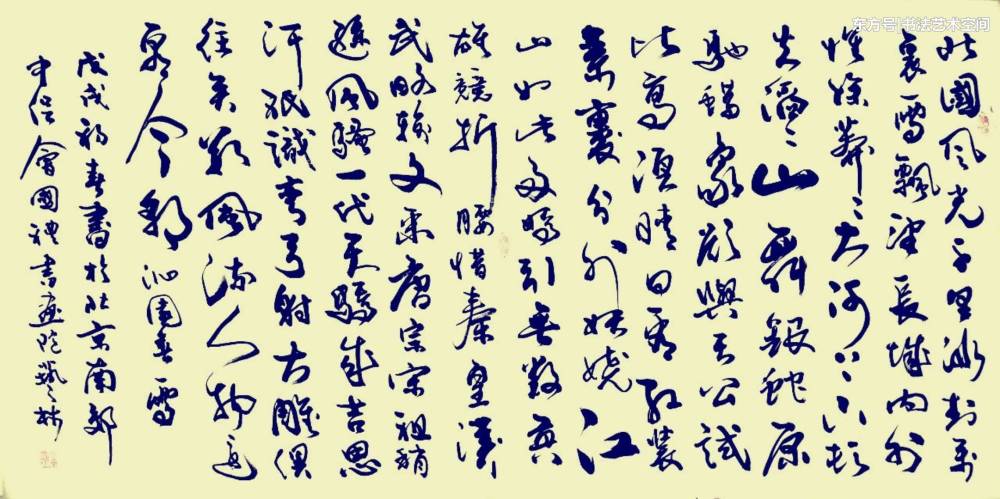 东方号|书法艺术空间
北國風光千里冰封萬
裏雪飄望長城内外
惟餘莽々大河上下頓
失滔々山舞銀蛇原
馳蠟象欲與天公試
比高須晴日看紅裝
素裹分外妖嬈江
山如此多嬌引無數英
雄競折腰惜秦皇漢
武略輸文采唐宗宋祖稍
遜風騷一代天驕成吉思
汗祇識彎弓射大雕俱
往矣數風流人物還
看今朝沁園春雪
戊戌初春書於北京南郊
中 會國禮書畫院藝林